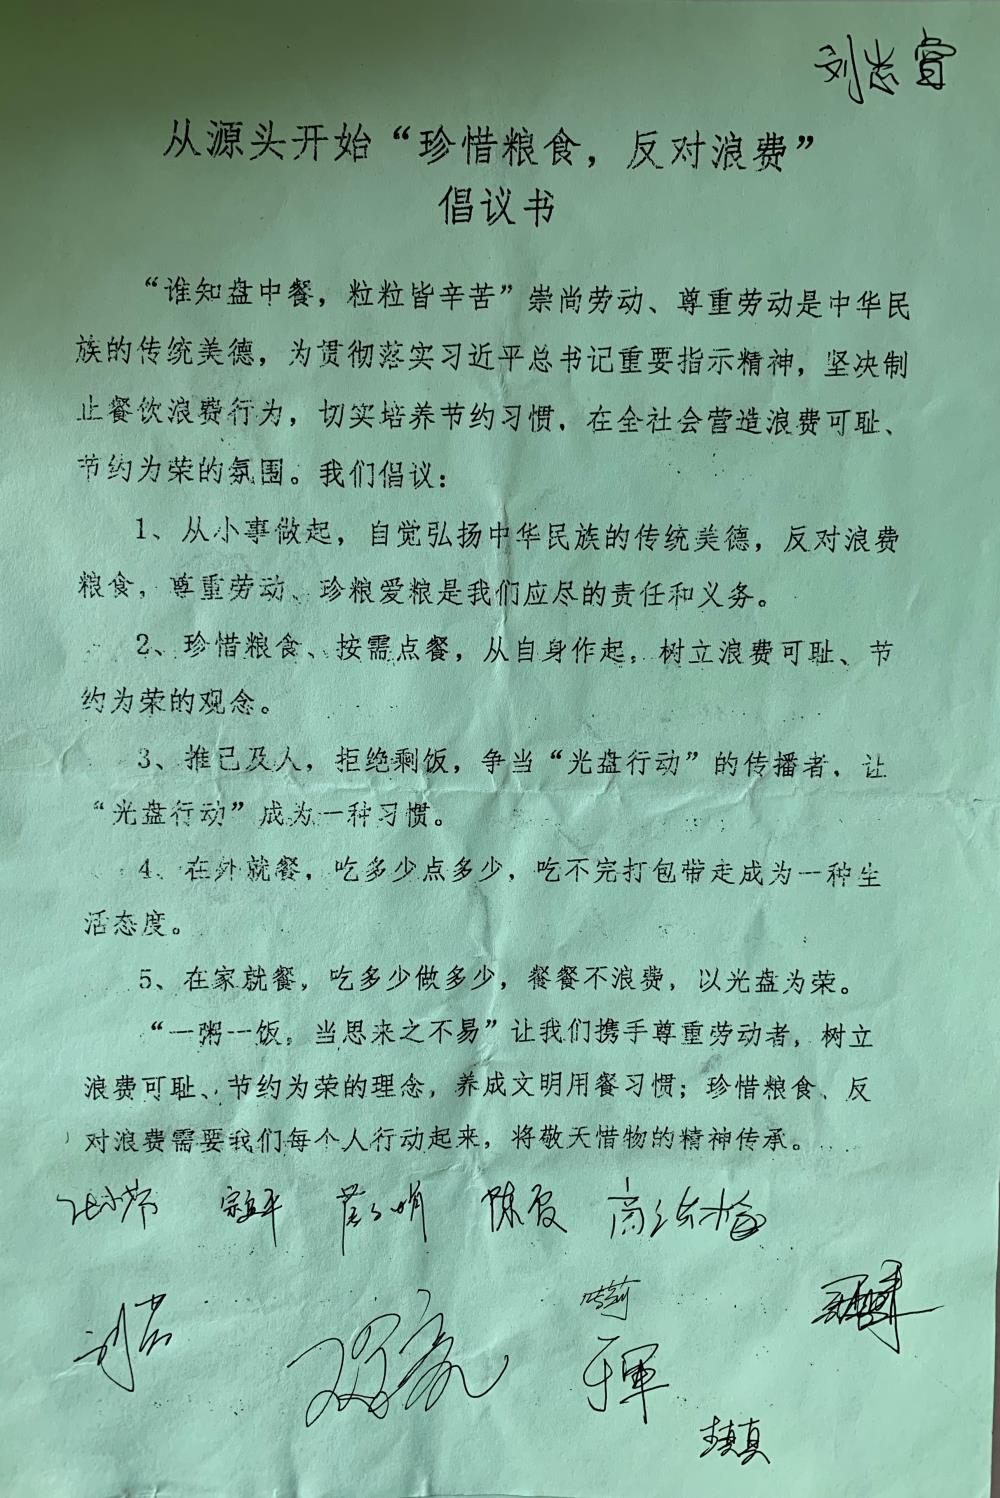 刘志睿
从源头开始“珍惜粮食，反对浪费”
倡议书
“谁知盘中餐，粒粒皆辛苦”崇尚劳动、尊重劳动是中华民
族的传统美德，为贯彻落实习近平总书记重要指示精神，坚决制
止餐饮浪费行为，切实培养节约习惯，在全社会营造浪费可耻、
节约为荣的氛围。我们倡议：
1、从小事做起，自觉弘扬中华民族的传统美德，反对浪费
粮食，尊重劳动、珍粮爱粮是我们应尽的责任和义务。
2、珍惜粮食、按需点餐，从自身作起，树立浪费可耻、节
约为荣的观念。
3、推己及人，拒绝剩饭，争当“光盘行动”的传播者，让
“光盘行动”成为一种习惯。
4、在外就餐，吃多少点多少，吃不完打包带走成为一种生
活态度。
5、在家就餐，吃多少做多少，餐餐不浪费，以光盘为荣。
“一粥一饭，当思来之不易”让我们携手尊重劳动者，树立
浪费可耻、节约为荣的理念，养成文明用餐习惯；珍惜粮食、反
对浪费需要我们每个人行动起来，将敬天惜物的精神传承。
于军